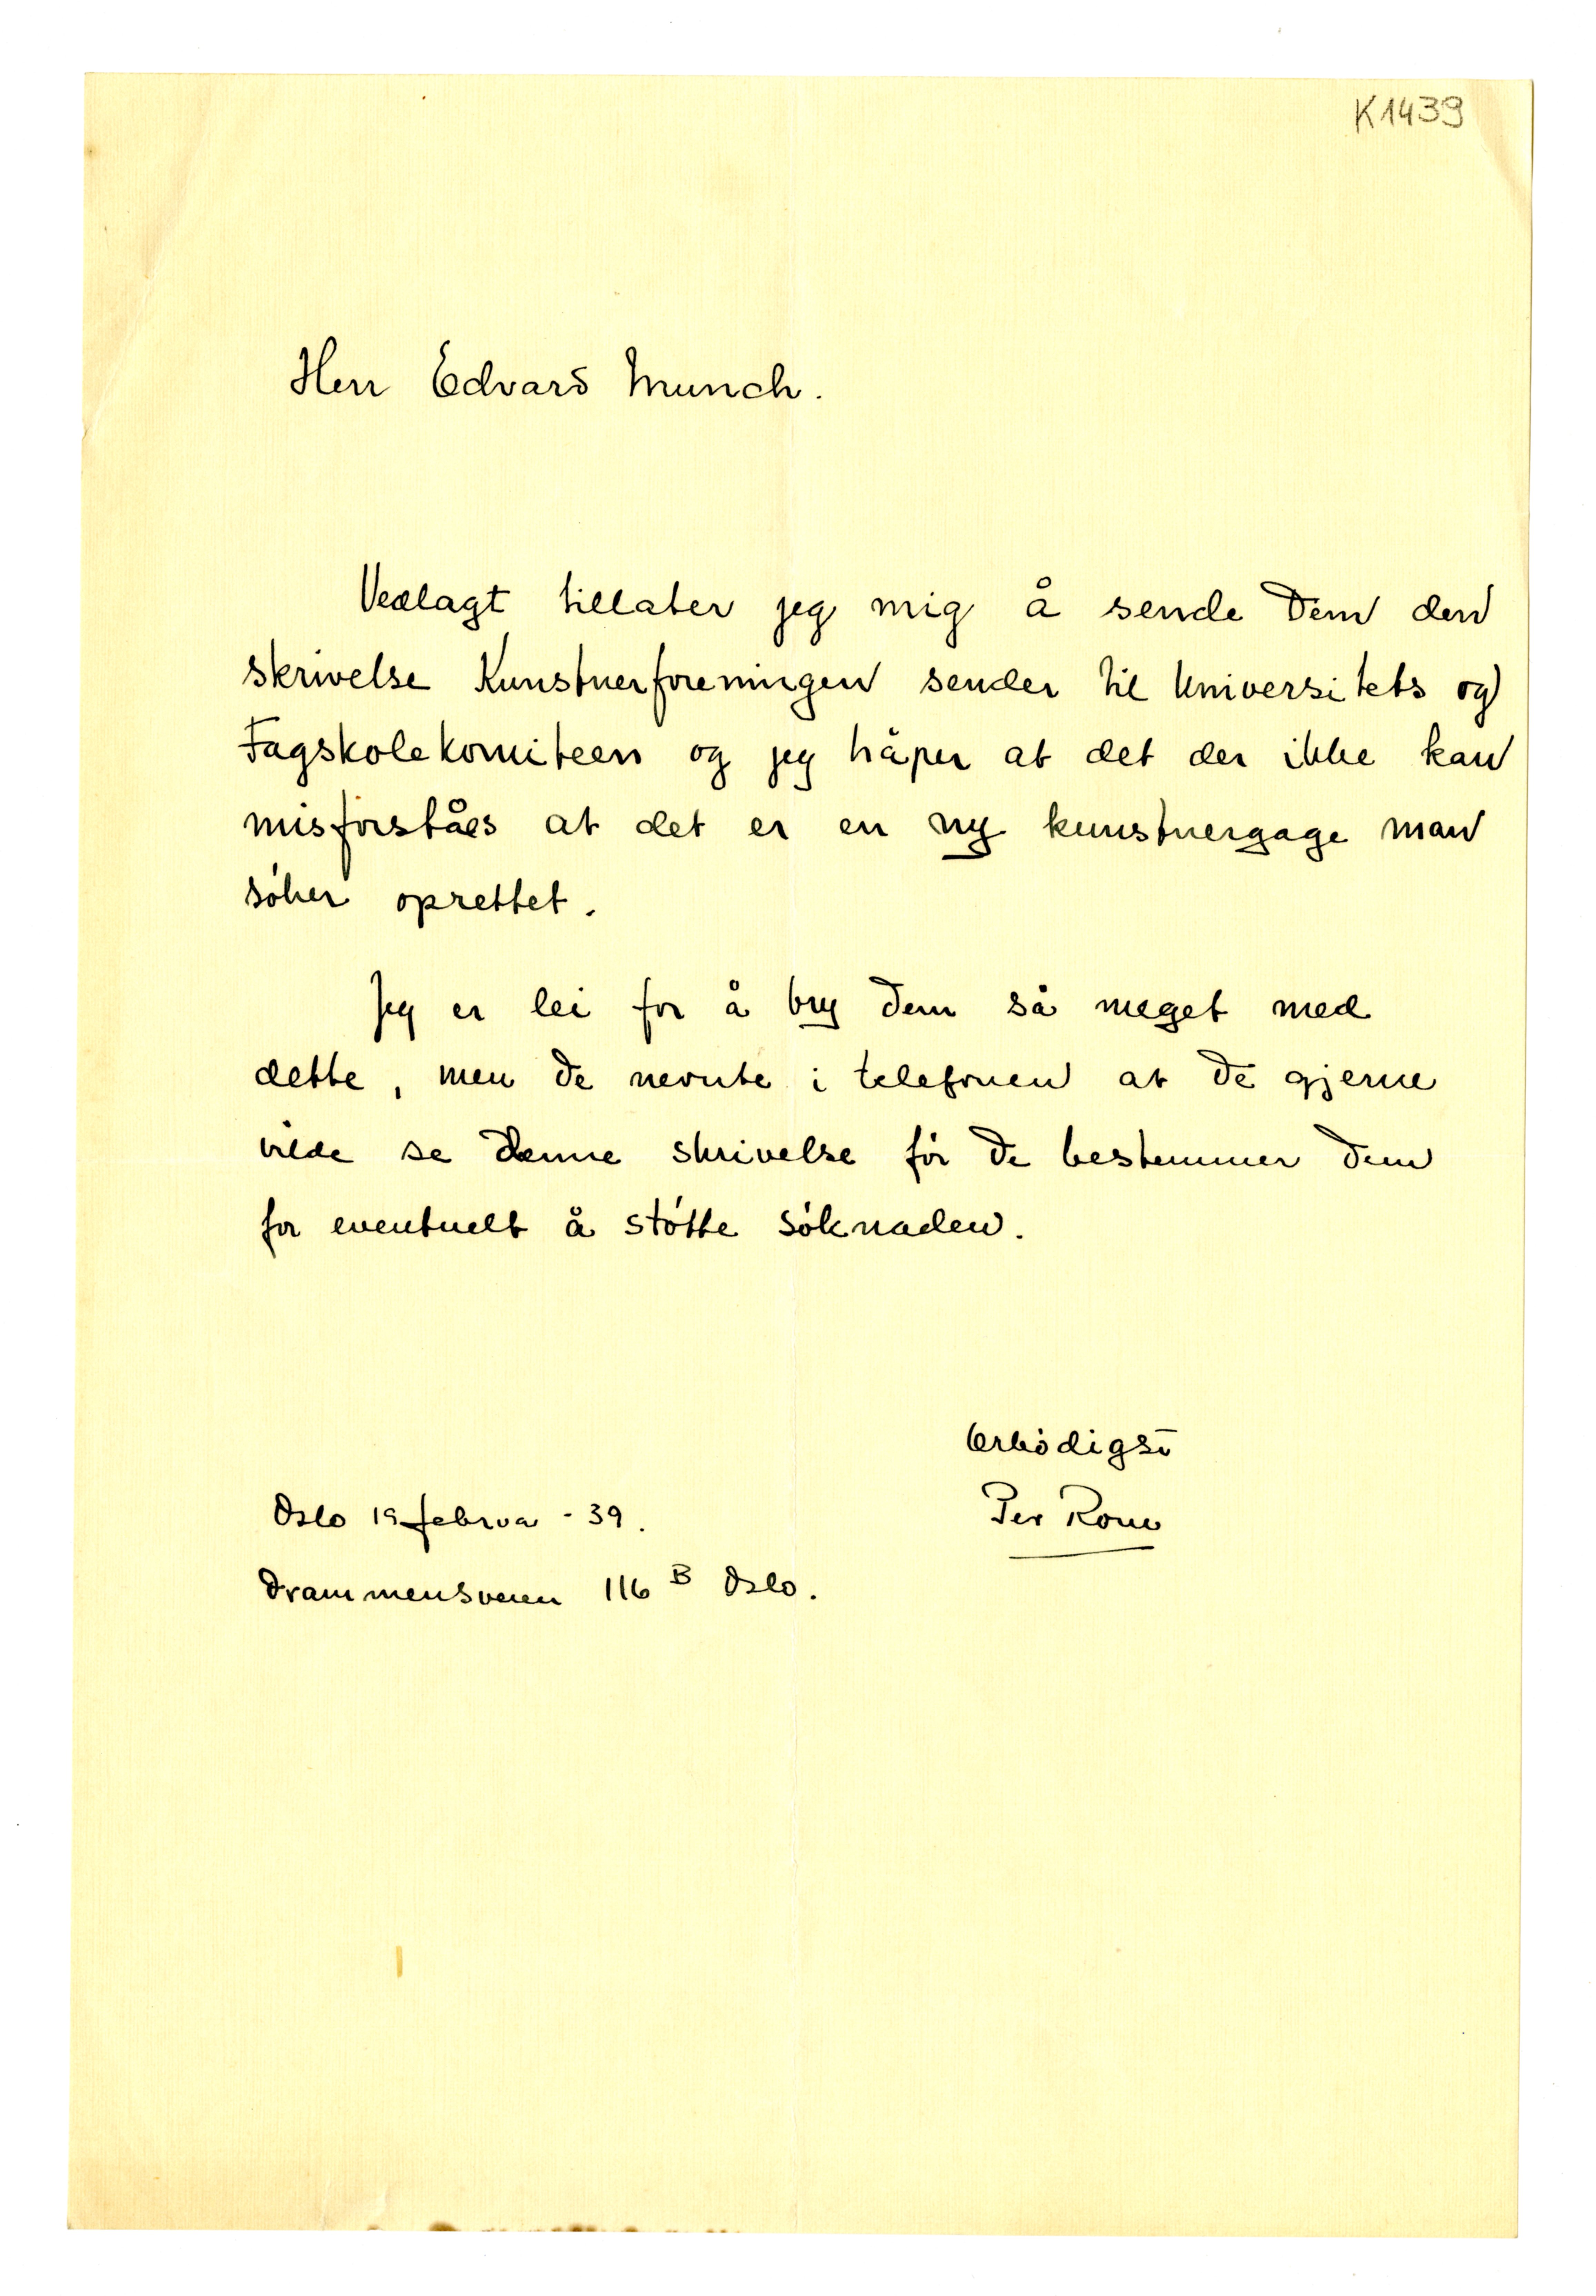 K1439
Herr Edvard Munch.
Vedlagt tillater jeg mig å sende Dem den
skrivelse Kunstnerforeningen sender til Universitets og
Fagskolekomiteen og jeg håper at det der ikke kan
misforståes at det er en ny kunstnergage man
söker oprettet.
Jeg er lei for å bry Dem så meget med
dette, men De nevnte i telefonen at De gjerne
vilde se denne skrivelse för De bestemmer Dem
for eventuelt å stötte söknaden.
Erbödigst
Per Rom
Oslo 19 februa - 39.
Drammensveien 116 B Oslo.